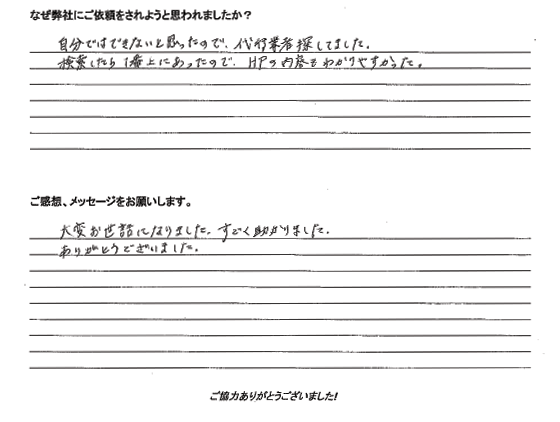 なぜ弊社にご依頼をされようと思われましたか？
自分ではできないと思ったので、代行業者探してました。
検索したら1番上にあったので、HPの内容もわかりやすかった。
ご感想、メッセージをお願いします。
大変お世話になりました。すごく助かりました。
ありがとうございました。
ご協力ありがとうございました!